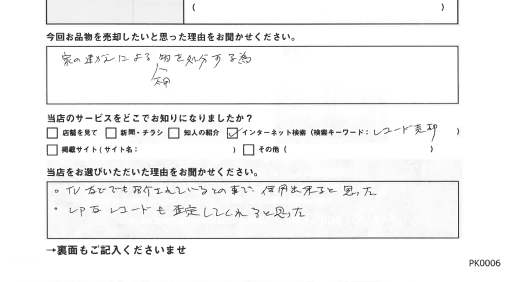 ( )
今回お品物を売却したいと思った理由をお聞かせください。
家の建かえによる物を処分する為
当店のサービスをどこでお知りになりましたか?
□ 店舗を見て □ 新聞・チラシ □ 知人の紹介 ☑ インターネット検索 (検索キーワード: レコード売却 )
□ 掲載サイト ( サイト名: ) □ その他 ( )
当店をお選びいただいた理由をお聞かせください。
・TVなどでも紹介されているとの事で 信用出来ると思った
・LPなレコードも査定してくれると思った
→裏面もご記入くださいませ
PK0006